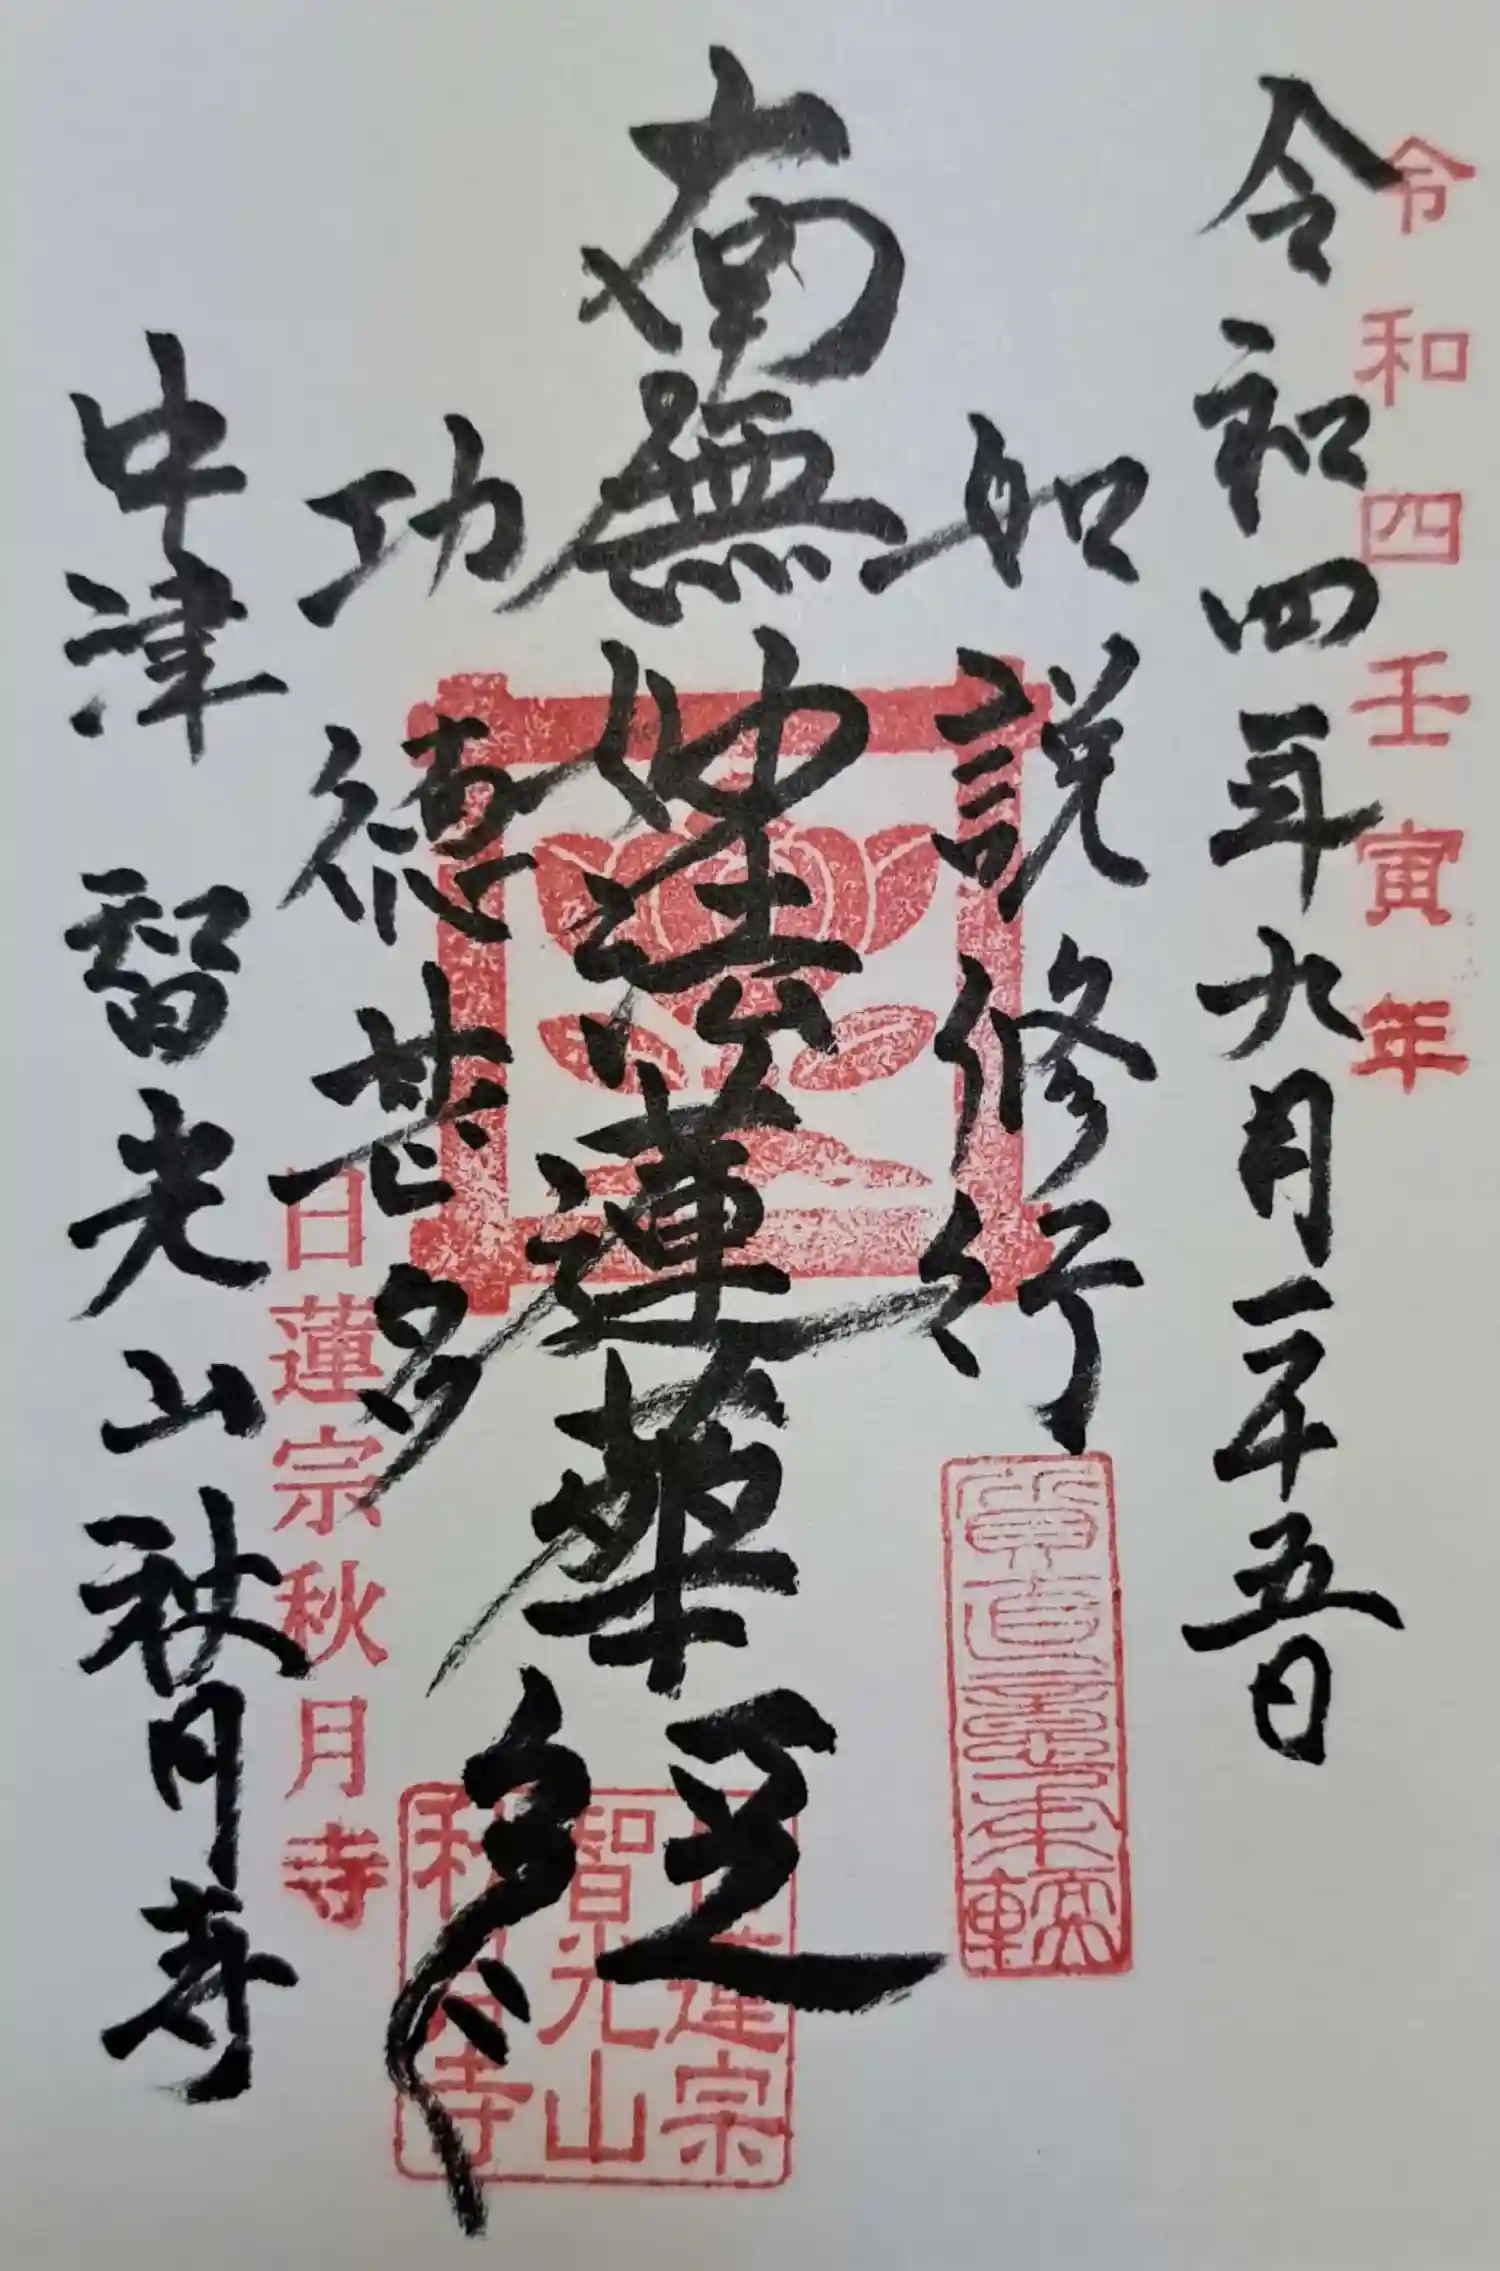 令和四壬寅年
令和四年九月二十五日
如説修行
南無妙法蓮華経
功徳甚多
日蓮宗秋月寺
中津 智光山 秋月寺
日蓮宗
智光山
秋月寺